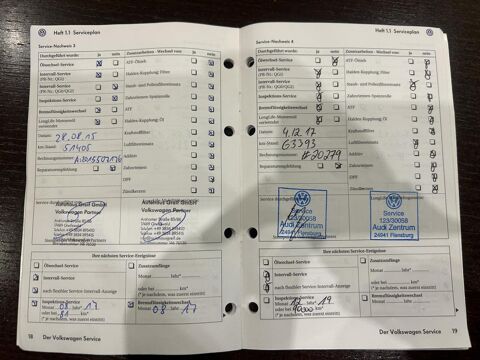 Heft 1.1 Serviceplan
Service-Nachweis 3
Durchgeführt wurde: ja nein
Zusatzarbeiten - Wechsel von: ja nein
Ölwechsel-Service
ATF-Ölsieb
Intervall-Service
(PR-Nr.: QG0)
Haldex-Kupplung: Filter
Intervall-Service
(PR-Nr.: QG1/QG2)
Staub- und Pollenfiltereinsatz
Inspektions-Service
Zahnriemen-Spannrolle
Bremsflüssigkeitswechsel
ATF
LongLife-Motorenöl
verwendet
Haldex-Kupplung: Öl
Datum: 28.08.15
Kraftstofffilter
km-Stand: 51405
Luftfiltereinsatz
Rechnungsnummer:
Additiv
Reparaturempfehlung
Zahnriemen
DPF
Zündkerzen
Autohaus Graf GmbH
Volkswagen Partner
Ihre nächsten Service-Ereignisse
Ölwechsel-Service
Zusatzumfänge
Intervall-Service
Monat Jahr*
nach flexibler Service Intervall-Anzeige
oder bei km*
(* je nachdem, was zuerst eintritt)
Inspektions-Service
Monat 08 Jahr* 17
Bremsflüssigkeitswechsel
Monat 08 Jahr 17
18 Der Volkswagen Service
Heft 1.1 Serviceplan
Service-Nachweis 4
Durchgeführt wurde: ja nein
Zusatzarbeiten - Wechsel von: ja nein
Ölwechsel-Service
ATF-Ölsieb
Intervall-Service
(PR-Nr.: QG0)
Haldex-Kupplung: Filter
Intervall-Service
(PR-Nr.: QG1/QG2)
Staub- und Pollenfiltereinsatz
Inspektions-Service
Zahnriemen-Spannrolle
Bremsflüssigkeitswechsel
ATF
LongLife-Motorenöl
verwendet
Haldex-Kupplung: Öl
Datum: 4.12.17
Kraftstofffilter
km-Stand: 63393
Luftfiltereinsatz
Rechnungsnummer:
Additiv
Reparaturempfehlung
Zahnriemen
DPF
Zündkerzen
Service
Audi Zentrum
24941 Flensburg
Service
123/30058
Audi Zentrum
24941 Flensburg
Ihre nächsten Service-Ereignisse
Ölwechsel-Service
Zusatzumfänge
Intervall-Service
Monat Jahr*
nach flexibler Service Intervall-Anzeige
oder bei km*
(* je nachdem, was zuerst eintritt)
Inspektions-Service
Monat 12 Jahr* 19
Bremsflüssigkeitswechsel
Monat Jahr
Der Volkswagen Service 19